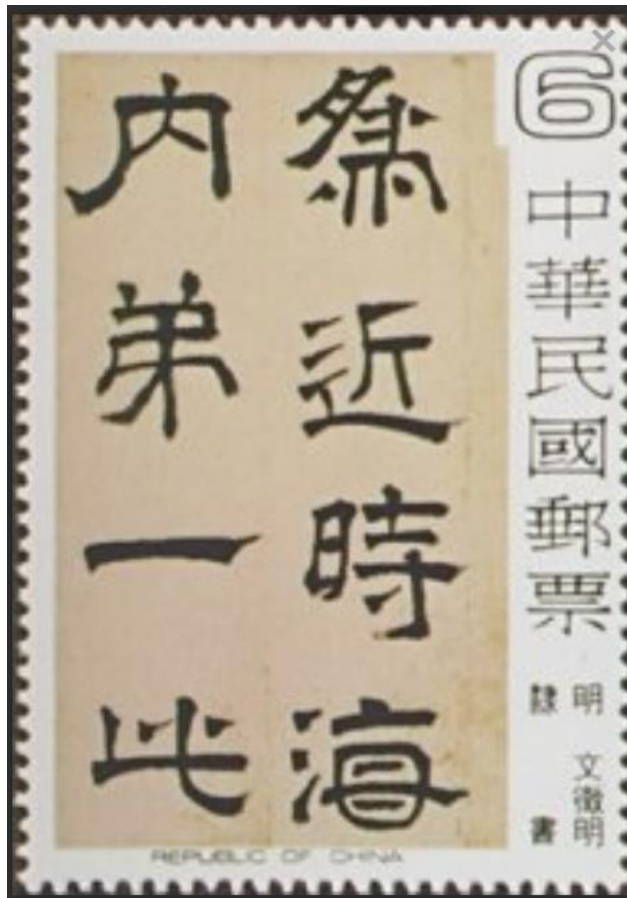 6
中華民國郵票
明 文徵明
隸書
近時海
内弟一此
REPUBLIC OF CHINA